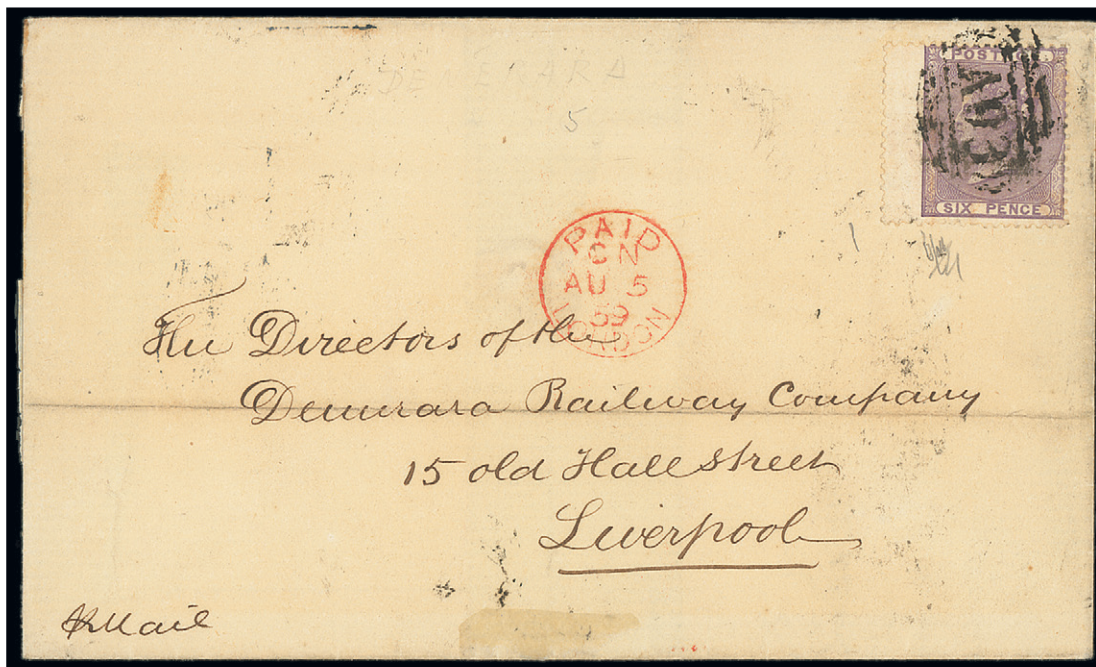 DEMERARA
5
POSTAGE
A03
SIX PENCE
PAID
CN
AU 5
59
LONDON
The Directors of the
Demerara Railway Company
15 old Hall Street
Liverpool
RMail